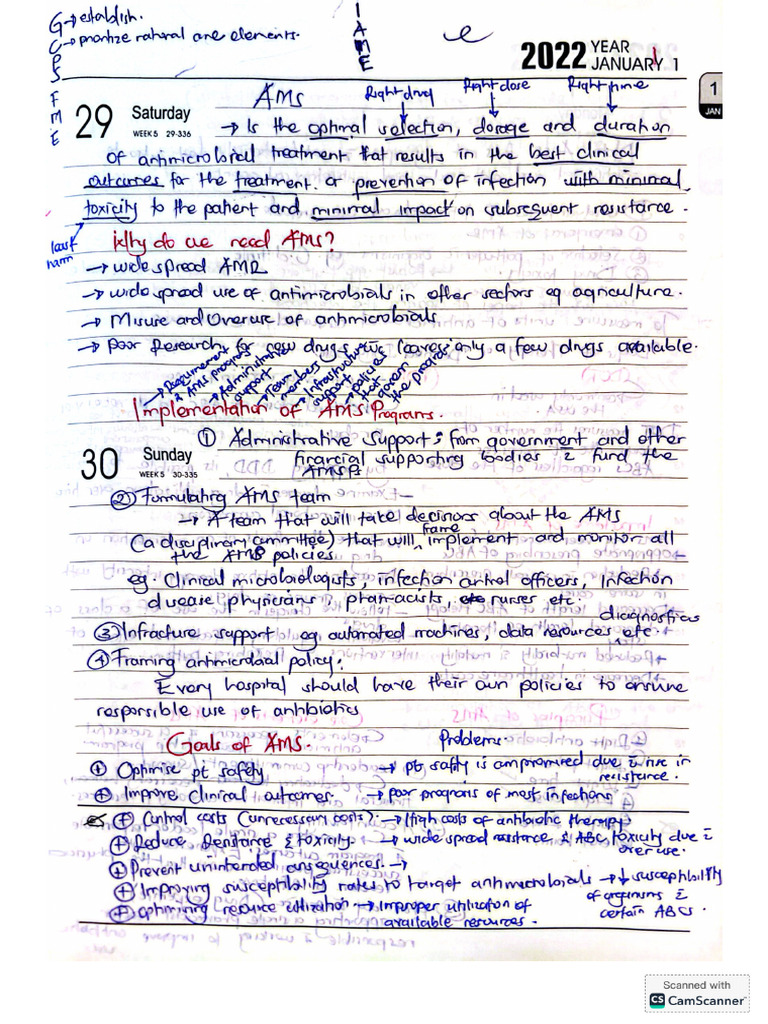 G→establish.
C→prioritize natural one elements.
P
S
F
M
E
I
A
M
E
e
2022 YEAR
JANUARY 1
1
JAN
29 Saturday
WEEK 5 29-336
AMS
Right drug Right dose Right time
→ Is the optimal selection, dosage and duration
of antimicrobial treatment that results in the best clinical
outcomes for the treatment or prevention of infection with minimal
toxicity to the patient and minimal impact on subsequent resistance.
least
harm
Why do we need AMS?
→ wide spread AMR
→ wide spread use of antimicrobials in other sectors eg agriculture.
→ Misuse and Overuse of antimicrobials
→ Poor Research for new drugs only a few drugs available.
→ Requirements
AMS programs
→ Administrative
support
→ Team
members
→ Infrastructure
support
→ policies
that
govern
the progs
Implementation of AMS Programs.
30 Sunday
WEEK 5 30-335
① Administrative support; from government and other
financial supporting bodies to fund the
AMSPs
② Formulating AMS team
→ A team that will take decisions about the AMS
(a disciplinary committee) that will, frame implement and monitor all
the AMS policies
eg. Clinical microbiologists, infection control officers, Infection
disease physicians, pharmacists, nurses etc.
③ Infracture support eg automated machines, data resources, diagnostics etc.
④ Framing antimicrobial policy:
Every hospital should have their own policies to ensure
responsible use of antibiotics
Goals of AMS. Problems.
⊕ Optimise pt safety → pt safty is compromised due to rise in
resistance.
⊕ Improve Clinical outcomes. → poor prognosis of most infections
⊕ Control costs (unnecessary costs): → High costs of antibiotic therapy
⊕ Reduce Resistance & toxicity → wide spread resistance & ABC toxicity due to
over use.
⊕ Prevent unintended consequences. →
⊕ Improving susceptibility rates to target antimicrobials → ↓ susceptibility
of organisms to
certain ABCs.
⊕ optimizing resource utilization → improper utilization of
available resources.
Scanned with
CS CamScanner